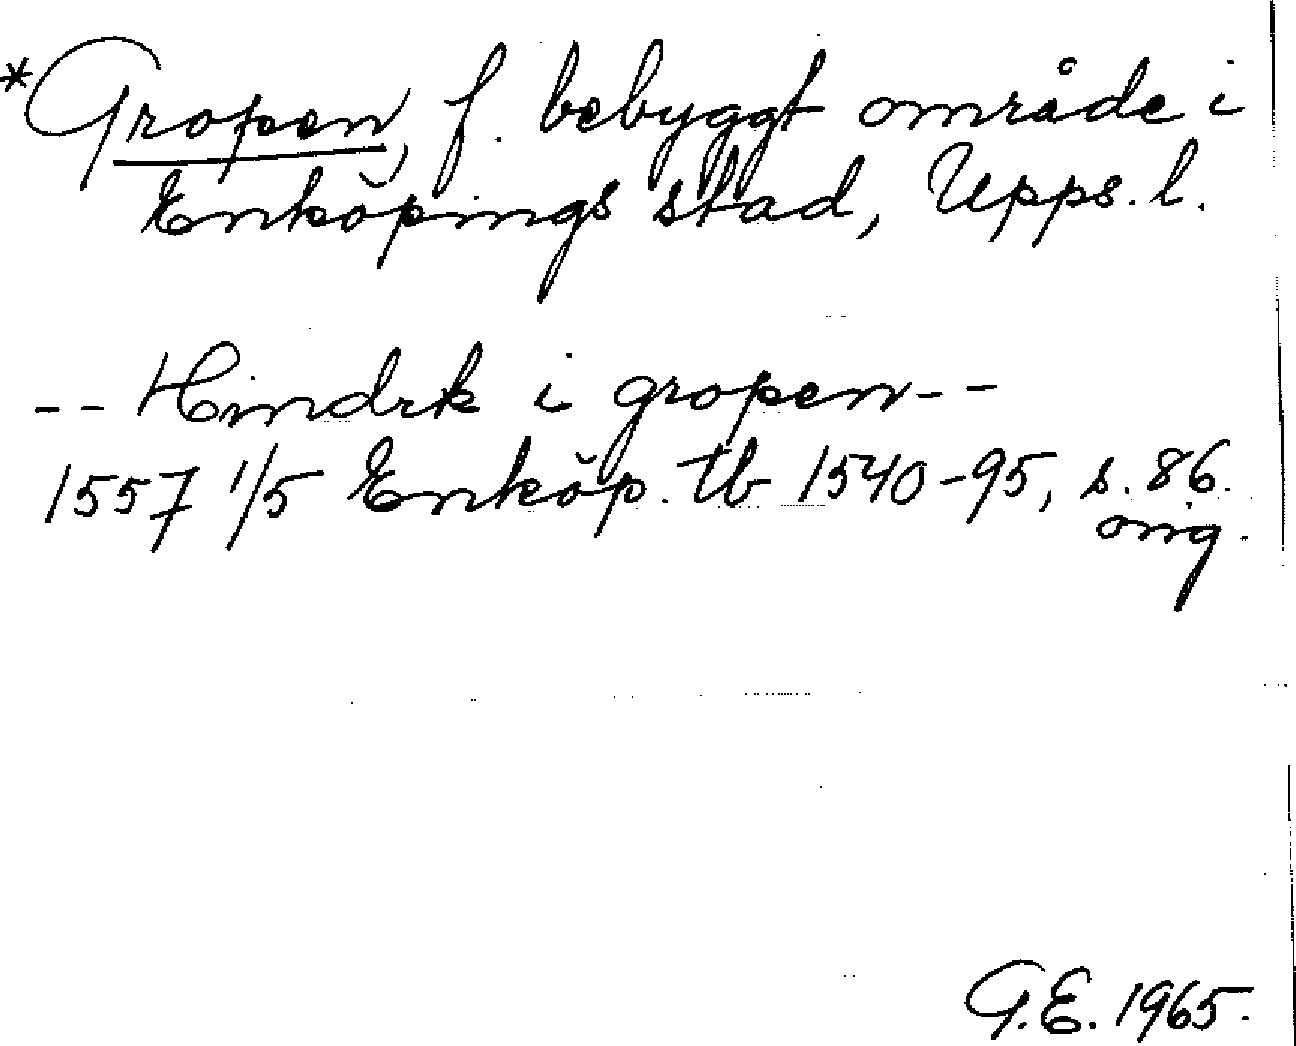 *Gropen, f. bebyggt område i
Enköpings stad, Upps. l.
-- Hindrk i gropen --
1557 1/5 Enköp. tb 1540-95, s. 86.
orig.
G.E. 1965.